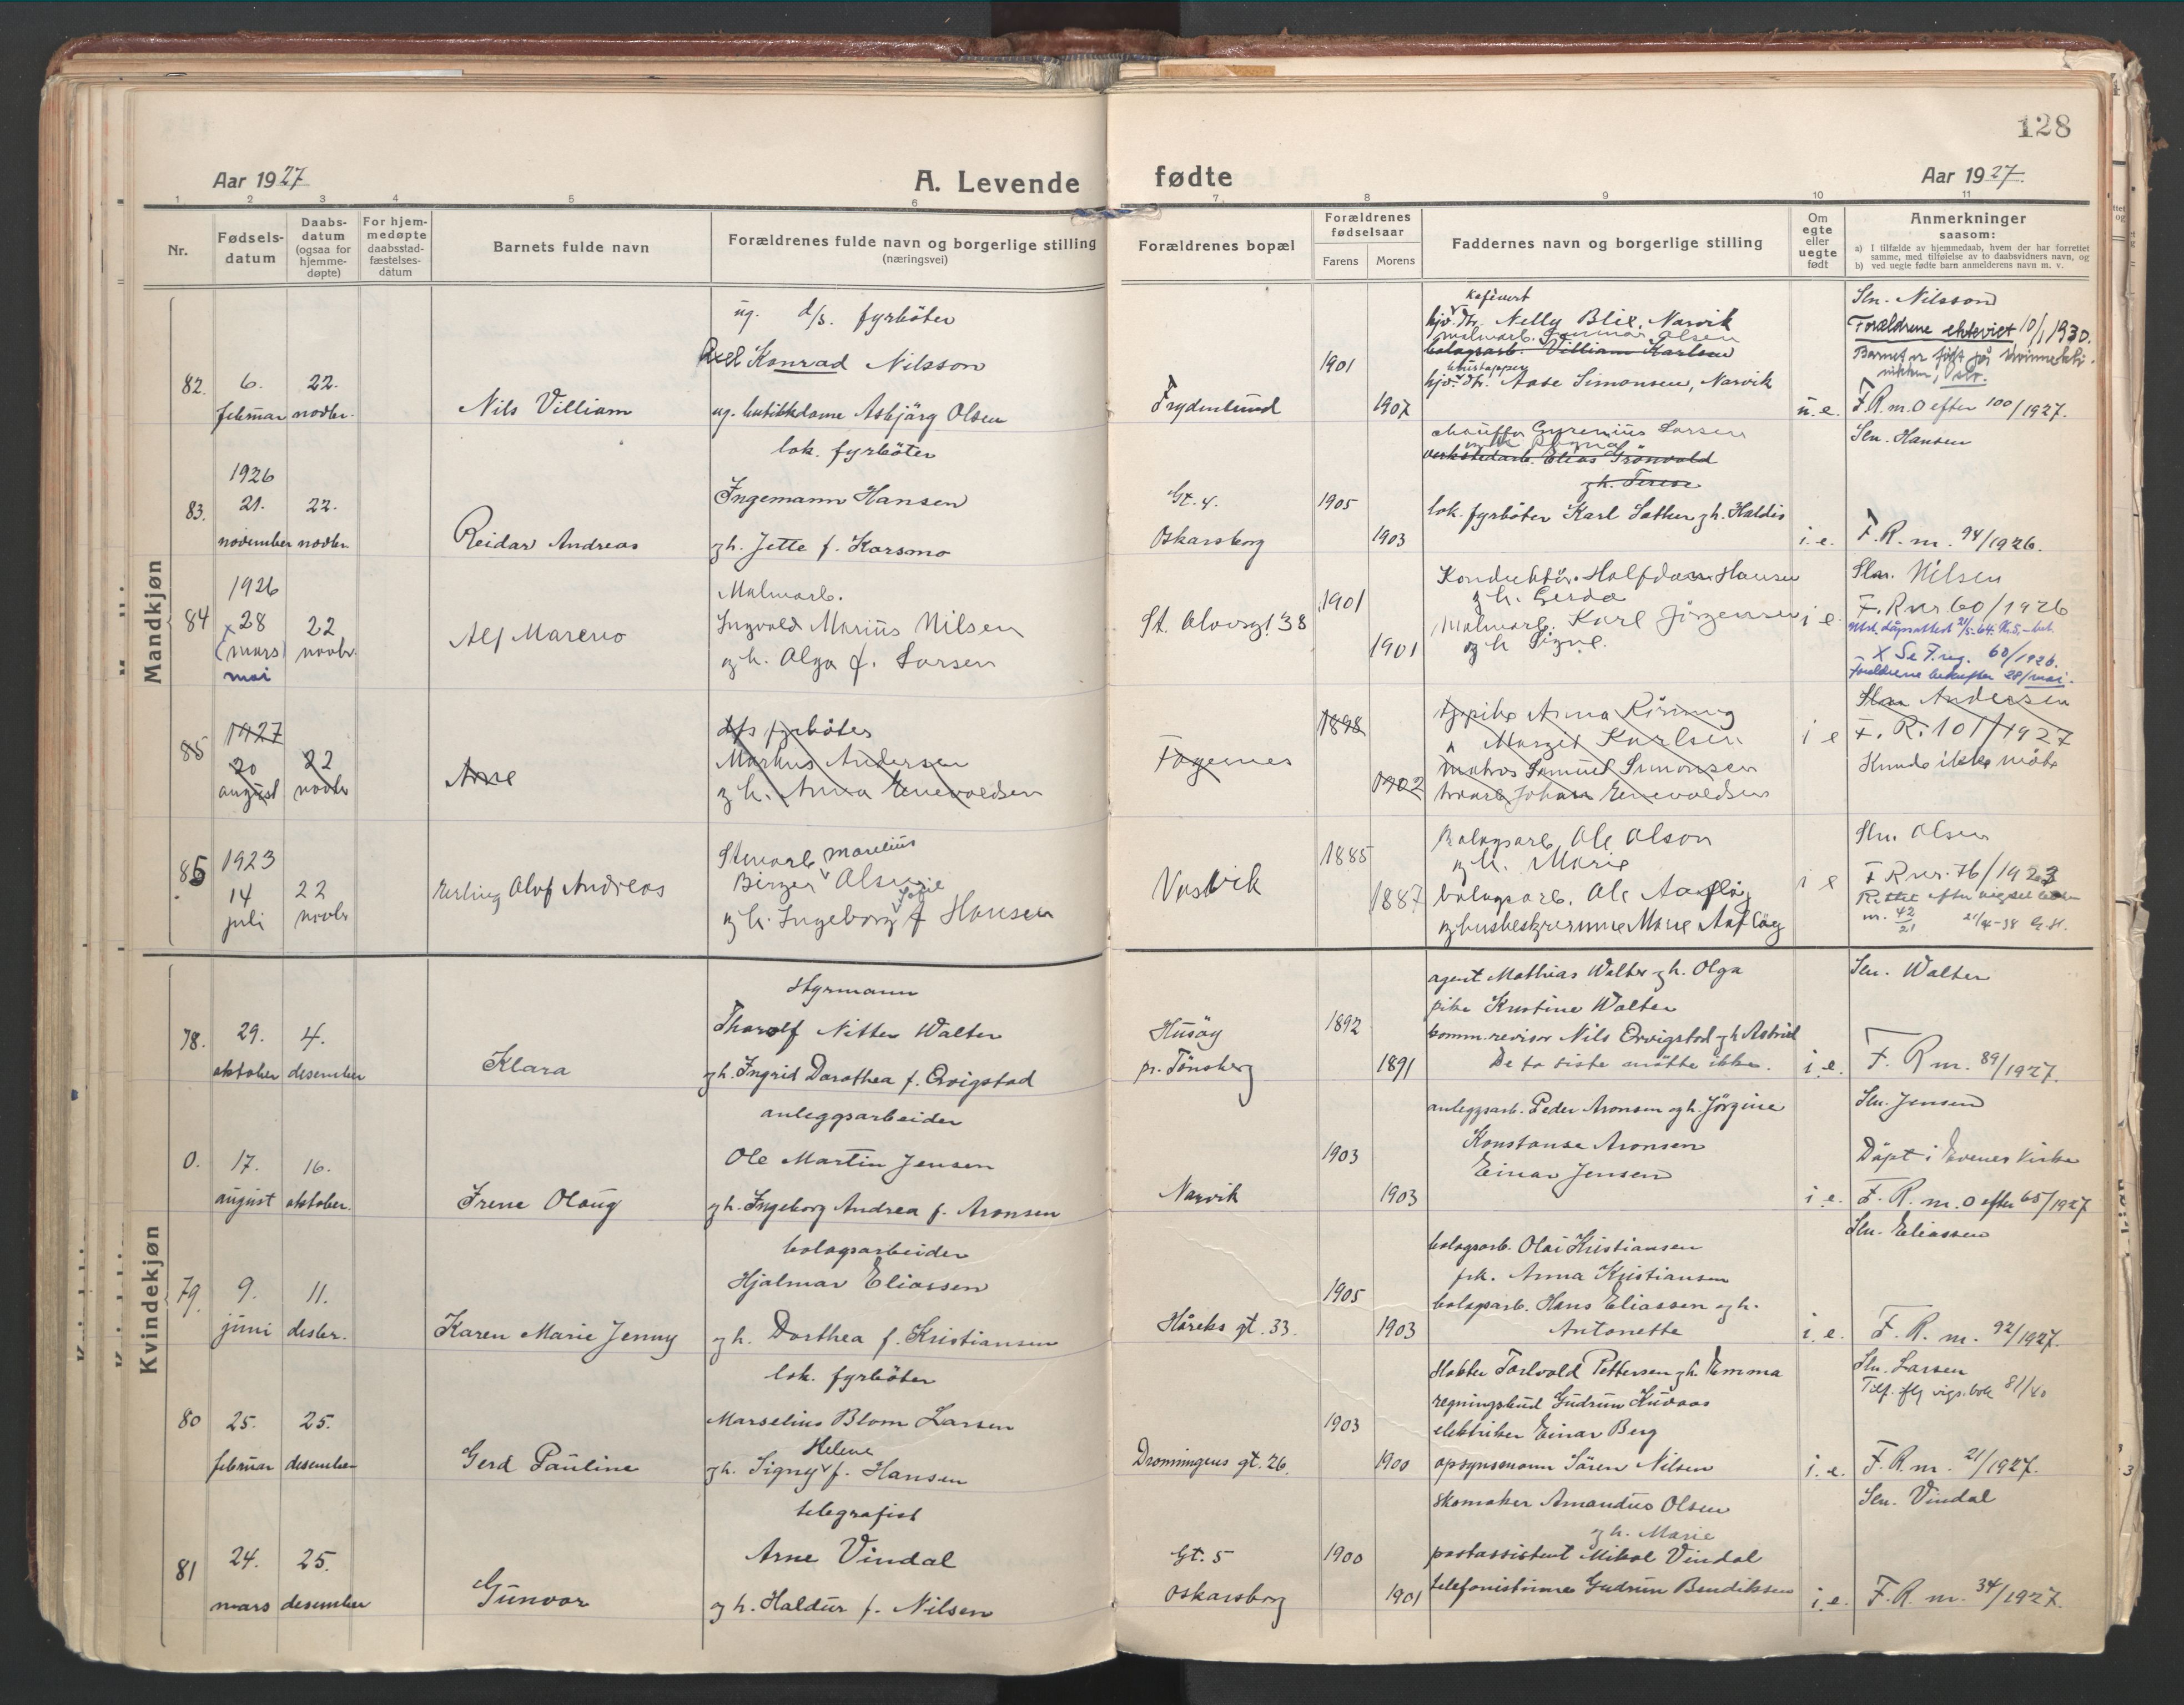 128
Aar 1927
A. Levende
fødte
Aar 1927.
1 2 3 4 5 6 7 8 9 10 11
Nr.
Fødsels-
datum
Daabs-
datum
(ogsaa for
hjemme-
døpte)
For hjem-
medøpte
daabsstad-
fæstelses-
datum
Barnets fulde navn
Forældrenes fulde navn og borgerlige stilling
(næringsvei)
Forældrenes bopæl
Forældrenes
fødselsaar
Farens
Morens
Faddernes navn og borgerlige stilling
Om
egte
eller
uegte
født
Anmerkninger
saasom:
a) I tilfælde av hjemmedaab, hvem der har forrettet
samme, med tilføielse av to daabsvidners navn, og
b) ved uegte fødte barn anmelderens navn m. v.
Mandkjøn
82.
6.
februar
22.
novbr.
Nils Villiam
ug. d/s. fyrböter
Axel Konrad Nilsson
ug. butikkdame Asbjørg Olsen
Frydenlund
1901
1907
Kafévert
hjv. dtr. Nelly Blix, Narvik
malmarb. Gunnar Olsen
bolagsarb. Villiam Karlsen
hjv. dtr. Aase Simonsen, Narvik
u.e.
Sln. Nilsson
Forældrene ekteviet 10/1 1930.
Barnet er født på Kvinnekli-
nikken, Oslo.
F.R.nr. 0 efter 100/1927.
83.
1926
21.
november
22.
novbr.
Reidar Andreas
lok. fyrböter
Ingemann Hansen
og h. Jette f. Karsmo
Gt. 4.
Oskarsborg
1905
1903
chauffør Gyrenius Larsen
og h. Ragna
verkstedarb. Elias Grönvold
og h. Terese
lok. fyrböter Karl Sæther og h. Haldis
i.e.
Sln. Hansen
F.R. nr. 94/1926.
84
1926
x 28
(mars)
mai
22
novbr.
Alf Mareno
Malmarb.
Ingvald Marius Nilsen
og h. Olga f. Larsen
St. Olavsgt. 38
1901
1901
Konduktör Halfdan Hansen
og h. Gerda
Malmarb. Karl Jörgensen
og h Signe.
i e
Sln. Nilsen
F.R nr. 60/1926
X Se F.reg. 60/1926.
foreldrene bekrefter 28/mai.
85
1927
20
august
22
novbr
Arne
d/s fyrböter
Markus Andersen
og h. Anna Enevoldsen
Fagernes
1898
1902
tj.pike Anna Kiring
Margit Karlsen
Matros Samuel Simonsen
Johan Enevoldsen
i e
Sln Andersen
F.R. 101/1927
Kunde ikke møte
85
1923
14
juli
22
novbr
Erling Olaf Andreas
Stenarb marelius
Birger Olsen
Sofie
og h. Ingeborg f Hansen
Vasvik
1885
1887
Bolagsarb Ole Olson
og h. Marie
bolagsarb. Ole Aaflöy
og husbestyrerinne Marie Aaflöy
i e
Sln. Olsen
F R nr. 76/1923
Rettet efter vigselbok
nr. 42/21 21/4-38 G.H.
Kvindekjøn
78.
29.
oktober
4.
desember
Klara
Styrmann
Thorolf Nitter Walter
og h. Ingrid Dorothea f. Qvigstad
Husöy
pr. Tönsberg
1892
1891
agent Mathias Walter og h. Olga
pike Kristine Walter
komm.revisor Nils Qvigstad og h Astrid
De to siste møtte ikke.
i.e.
Sln. Walter
F. R nr. 89/1927.
0.
17.
august
16.
oktober.
Irene Olaug
anleggsarbeider
Ole Martin Jensen
og h. Ingeborg Andrea f. Aronsen
Narvik
1903
1903
anleggsarb. Peder Aronsen og h. Jörgine
Konstanse Aronsen
Einar Jensen
i.e.
Sln. Jensen
Döpt i Evenes Kirke
F.R. nr. 0 efter 65/1927
79.
9.
juni
11.
desbr.
Karen Marie Jenny
bolagsarbeider
Hjalmar Eliassen
og h. Dorthea f. Kristiansen
Håreks gt. 33.
1905
1903
bolagsarb. Olai Kristiansen
frk. Anna Kristiansen
bolagsarb. Hans Eliassen og h.
Antonette
i.e.
Sln. Eliassen
F.R. nr. 92/1927.
80
25.
februar
25.
desember
Gerd Pauline
lok. fyrböter
Marselius Blom Larsen
Helene
og h. Signy f. Hansen
Dronningens gt. 26.
1903
1900
Torlvald Pettersen og h. Emma
regningsbud Gudrun Kuvaas
elektriker Einar Berg
opsynsmann Sören Nilsen
i.e.
Sln. Larsen
Tilf. iflg vigs.bok 81/40
F.R.nr. 21/1927.
81
24.
mars
25.
desember
Gunvor
telegrafist
Arne Vindal
og h. Haldur f. Nilsen
Gt. 5
Oskarsborg
1900
1901
Skomaker Amandus Olsen
og h. Marie
postassistent Mikal Vindal
telefonistinne Gudrun Bendiksen
i.e.
Sln. Vindal
F.R. nr. 34/1927.